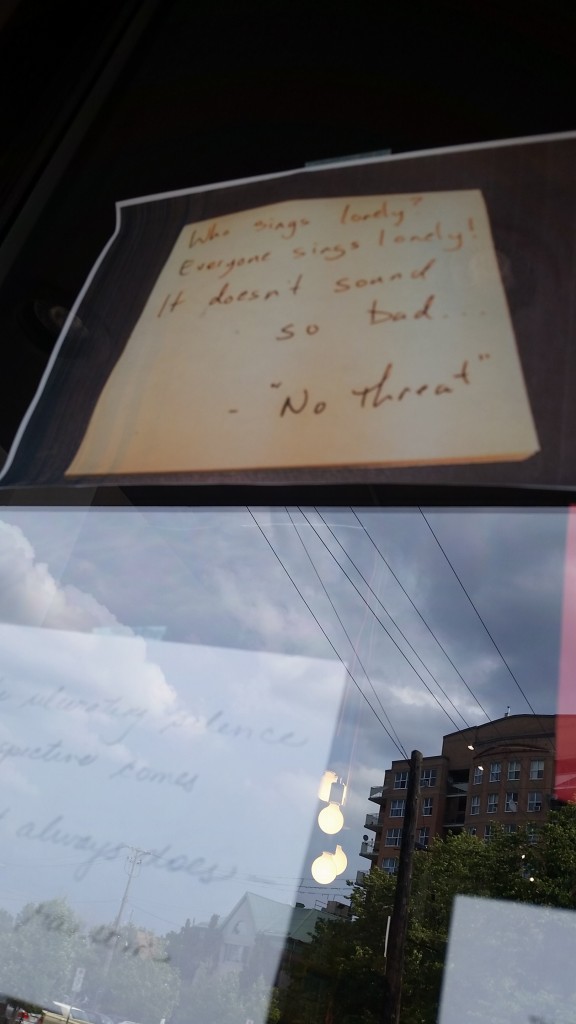 Who sings lonely?
Everyone sings lonely!
It doesn't sound
so bad...
- "No threat"
silence
comes
always does